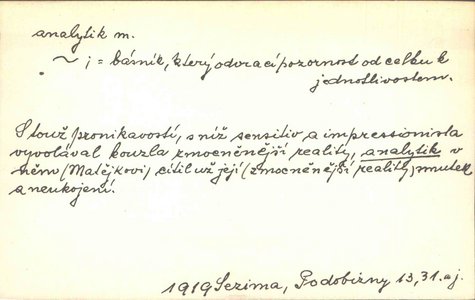 analytik m.
~ ; = básník, který odvrací pozornost od celku k
jednotlivostem.
S touž pronikavostí, s níž sensitiv a impressionista
vyvolával kouzla zmocněnější reality, analytik v
něm (Matějkovi) cítil už její (zmocněnější reality) smutek
a neukojení.
1919 Sezima, Podobizny 13, 31. aj.